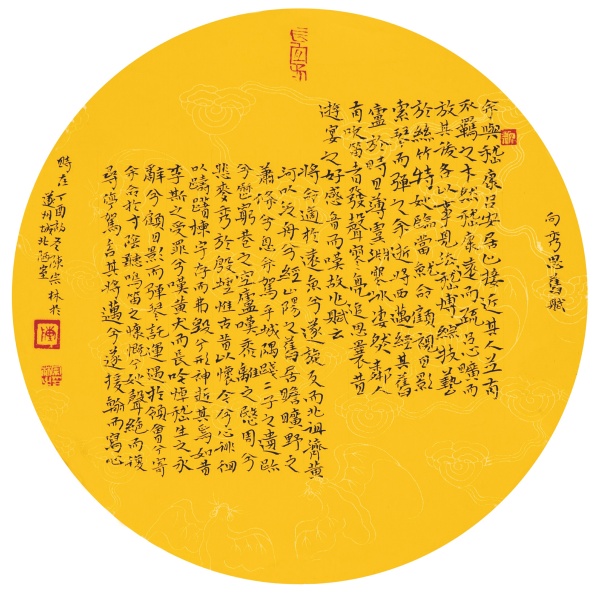 向秀思舊賦
余與嵇康呂安居止接近其人並有
不羈之才然嵇康遠而疏呂心曠而
放其後各以事見法嵇博綜技藝
於絲竹特妙臨當就命顧視日影
索琴而彈之余逝將西邁經其舊
廬於時日薄虞淵寒冰淒然鄰人
有吹笛者發聲寥亮追思曩昔
遊宴之好感音而嘆故作賦云
將命適於遠京兮遂旋反而北徂濟黃
河以泛舟兮經山陽之舊居瞻曠野之
蕭條兮息余駕乎城隅踐二子之遺跡
兮歷窮巷之空廬嘆黍離之愍周兮
悲麥秀於殷墟惟古昔以懷今兮心徘徊
以躊躇棟宇存而弗毀兮形神逝其焉如昔
李斯之受罪兮嘆黃犬而長吟悼嵇生之永
辭兮顧日影而彈琴託運遇於領會兮寄
余命於寸陰聽鳴笛之慷慨兮妙聲絕而復
尋停駕言其將邁兮遂援翰而寫心
時在丁酉初冬陳宗林於
遂州城北陋室